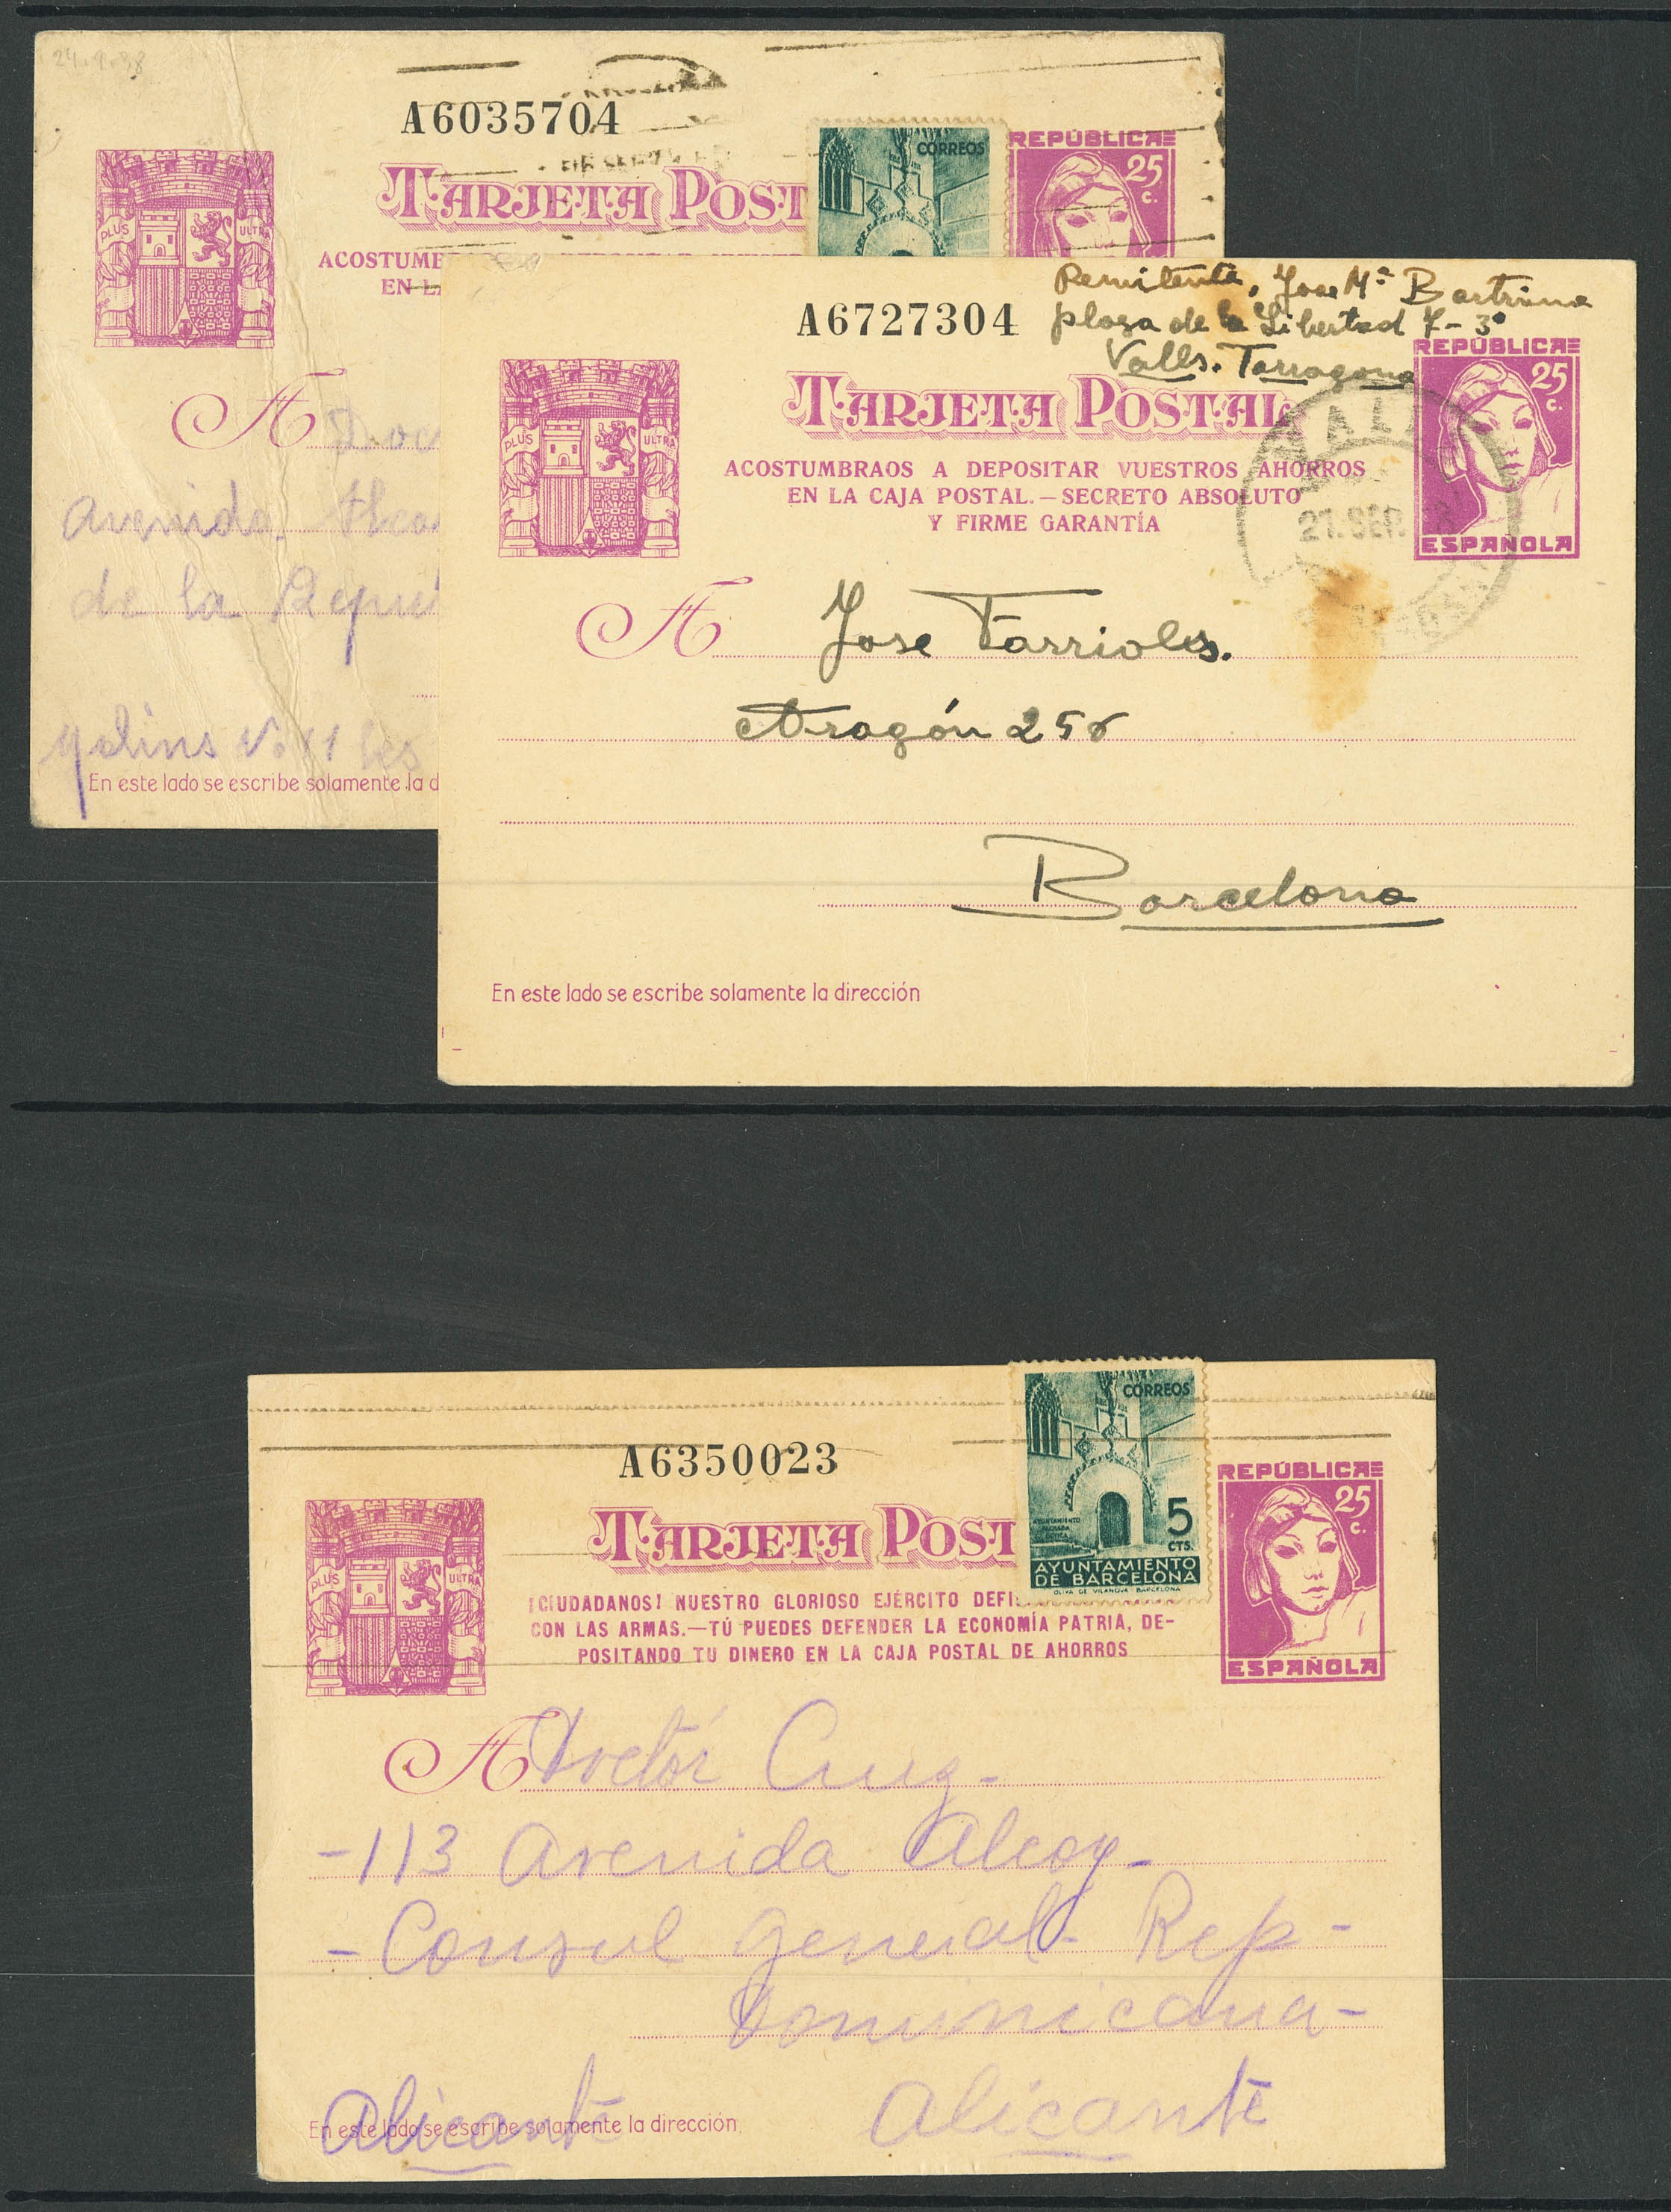 24.9.38
A6035704
TARJETA POST
CORREOS
REPÚBLICA
25
c.
PLUS ULTRA
ACOSTUMB
EN LA
A Doc
Avenida
de la Repu
No 11
En este lado se escribe solamente la d
Remitente, Jose Mª Bartrina
plaza de la Libertad 7-3º
Valls. Tarragona
A6727304
TARJETA POSTAL
REPÚBLICA
25
c.
ESPAÑOLA
PLUS ULTRA
ACOSTUMBRAOS A DEPOSITAR VUESTROS AHORROS
EN LA CAJA POSTAL.—SECRETO ABSOLUTO
Y FIRME GARANTÍA
VALLS
21.SEP.
A Jose Farrioles.
Aragón 256
Barcelona
En este lado se escribe solamente la dirección
A6350023
TARJETA POST
CORREOS
5
CTS.
AYUNTAMIENTO
DE BARCELONA
OLIVA DE VILANOVA BARCELONA
REPÚBLICA
25
c.
ESPAÑOLA
PLUS ULTRA
¡CIUDADANOS! NUESTRO GLORIOSO EJÉRCITO DEFI
CON LAS ARMAS.—TÚ PUEDES DEFENDER LA ECONOMÍA PATRIA, DE-
POSITANDO TU DINERO EN LA CAJA POSTAL DE AHORROS
A Doctor Cruz-
-113 Avenida Alcoy-
-Consul general Rep-
Dominicana-
Alicante Alicante
En este lado se escribe solamente la dirección